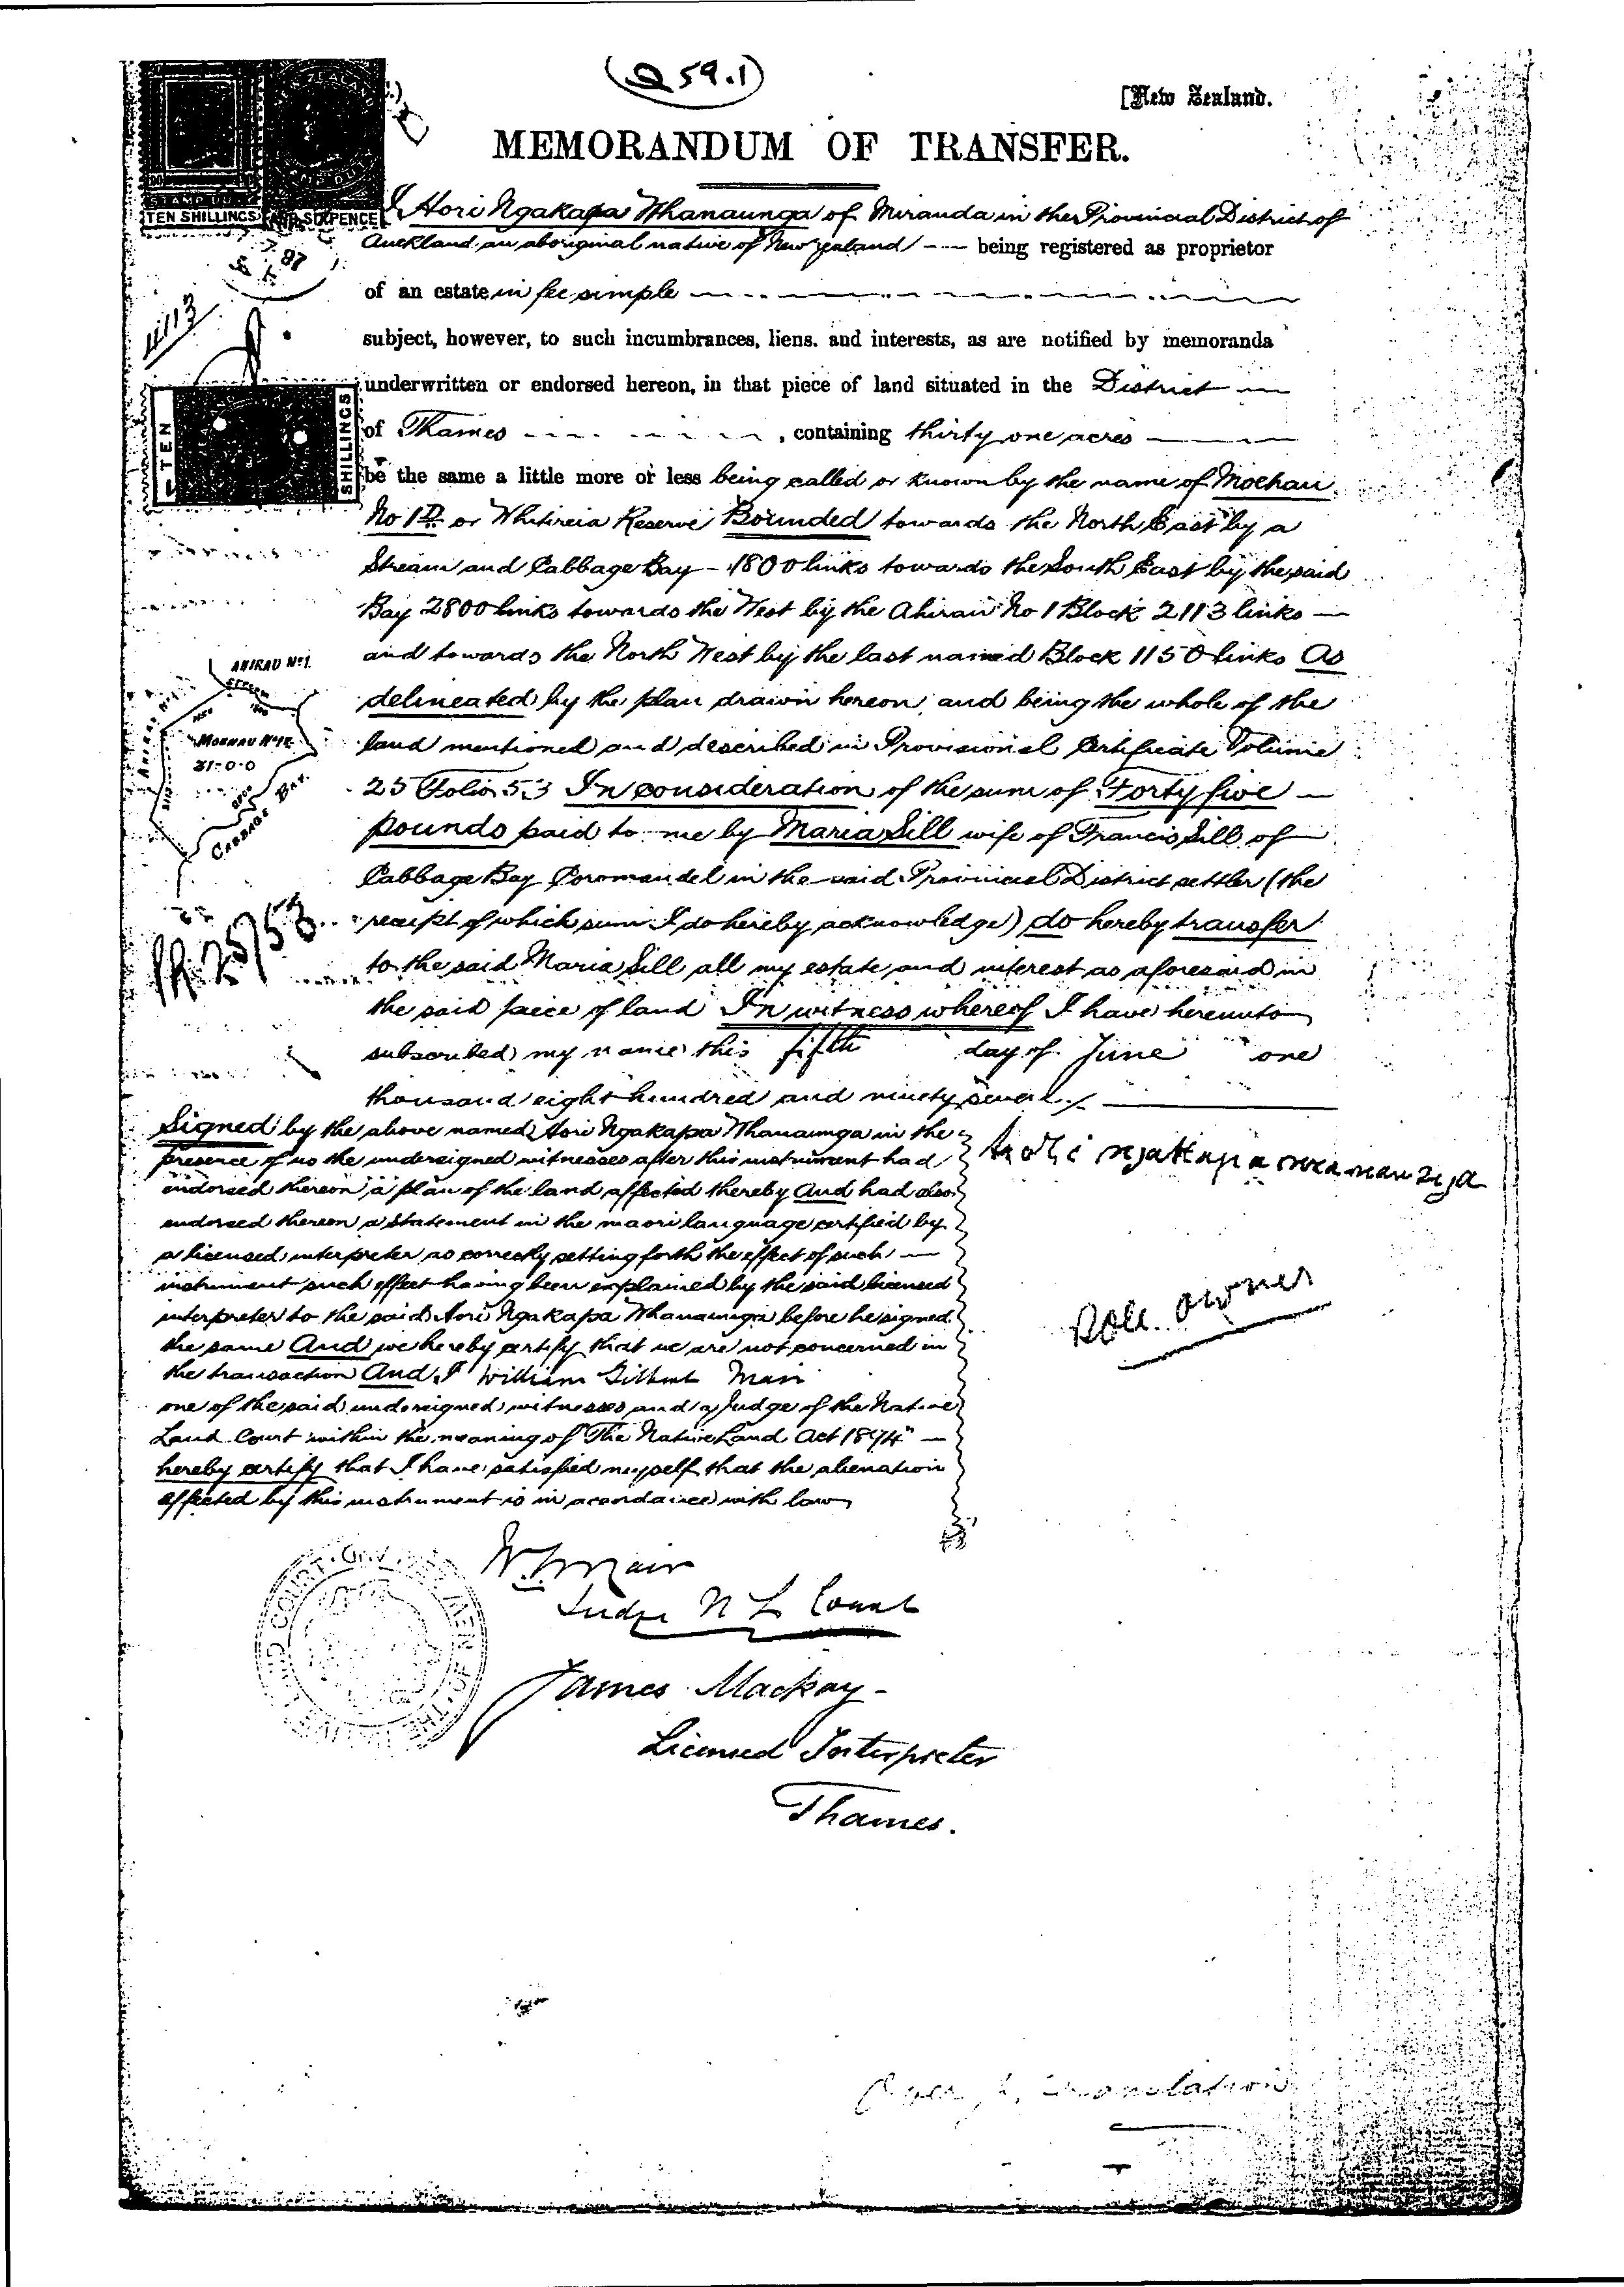 (Q 59.1)
[New Zealand.
MEMORANDUM OF TRANSFER.
TEN SHILLINGS
SIXPENCE
I Hori Ngakapa Whanaunga of Miranda in the Provincial District of
Auckland an aboriginal native of New Zealand being registered as proprietor
of an estate in fee simple
subject, however, to such incumbrances, liens. and interests, as are notified by memoranda
underwritten or endorsed hereon, in that piece of land situated in the District
TEN
SHILLINGS
of Thames , containing thirty one acres
be the same a little more or less being called or known by the name of Moehau
No 1D or Whitireia Reserve Bounded towards the North East by a
Stream and Cabbage Bay - 1800 links towards the South East by the said
Bay 2800 links towards the West by the Ahirau No 1 Block 2113 links
and towards the North West by the last named Block 1150 links As
delineated by the plan drawn hereon and being the whole of the
land mentioned and described in Provisional Certificate Volume
25 Folio 53 In consideration of the sum of Forty five
pounds paid to me by Maria Sill wife of Francis Sill of
Cabbage Bay Coromandel in the said Provincial District settler (the
receipt of which sum I do hereby acknowledge) do hereby transfer
to the said Maria Sill all my estate and interest as aforesaid in
the said piece of land In witness whereof I have hereunto
subscribed my name this fifth day of June one
thousand eight hundred and ninety seven
AHIRAU No 1.
STREAM
MOEHAU No 1D
31-0-0
CABBAGE BAY
25/53
Signed by the above named Hori Ngakapa Whanaunga in the
presence of us the undersigned witnesses after this instrument had
endorsed thereon a plan of the land affected thereby And had also
endorsed thereon a statement in the maori language certified by
a licensed interpreter as correctly setting forth the effect of such
instrument such effect having been explained by the said licensed
interpreter to the said Hori Ngakapa Whanaunga before he signed
the same And we hereby certify that we are not concerned in
the transaction And I William Gilbert Mair
one of the said undersigned witnesses and a Judge of the Native
Land Court within the meaning of "The Native Land Act 1894"
hereby certify that I have satisfied myself that the alienation
effected by this instrument is in accordance with law
Hori Ngakapa Whanaunga
Sole owner
W. G. Mair
Judge N L Court
James Mackay -
Licensed Interpreter
Thames.
translation